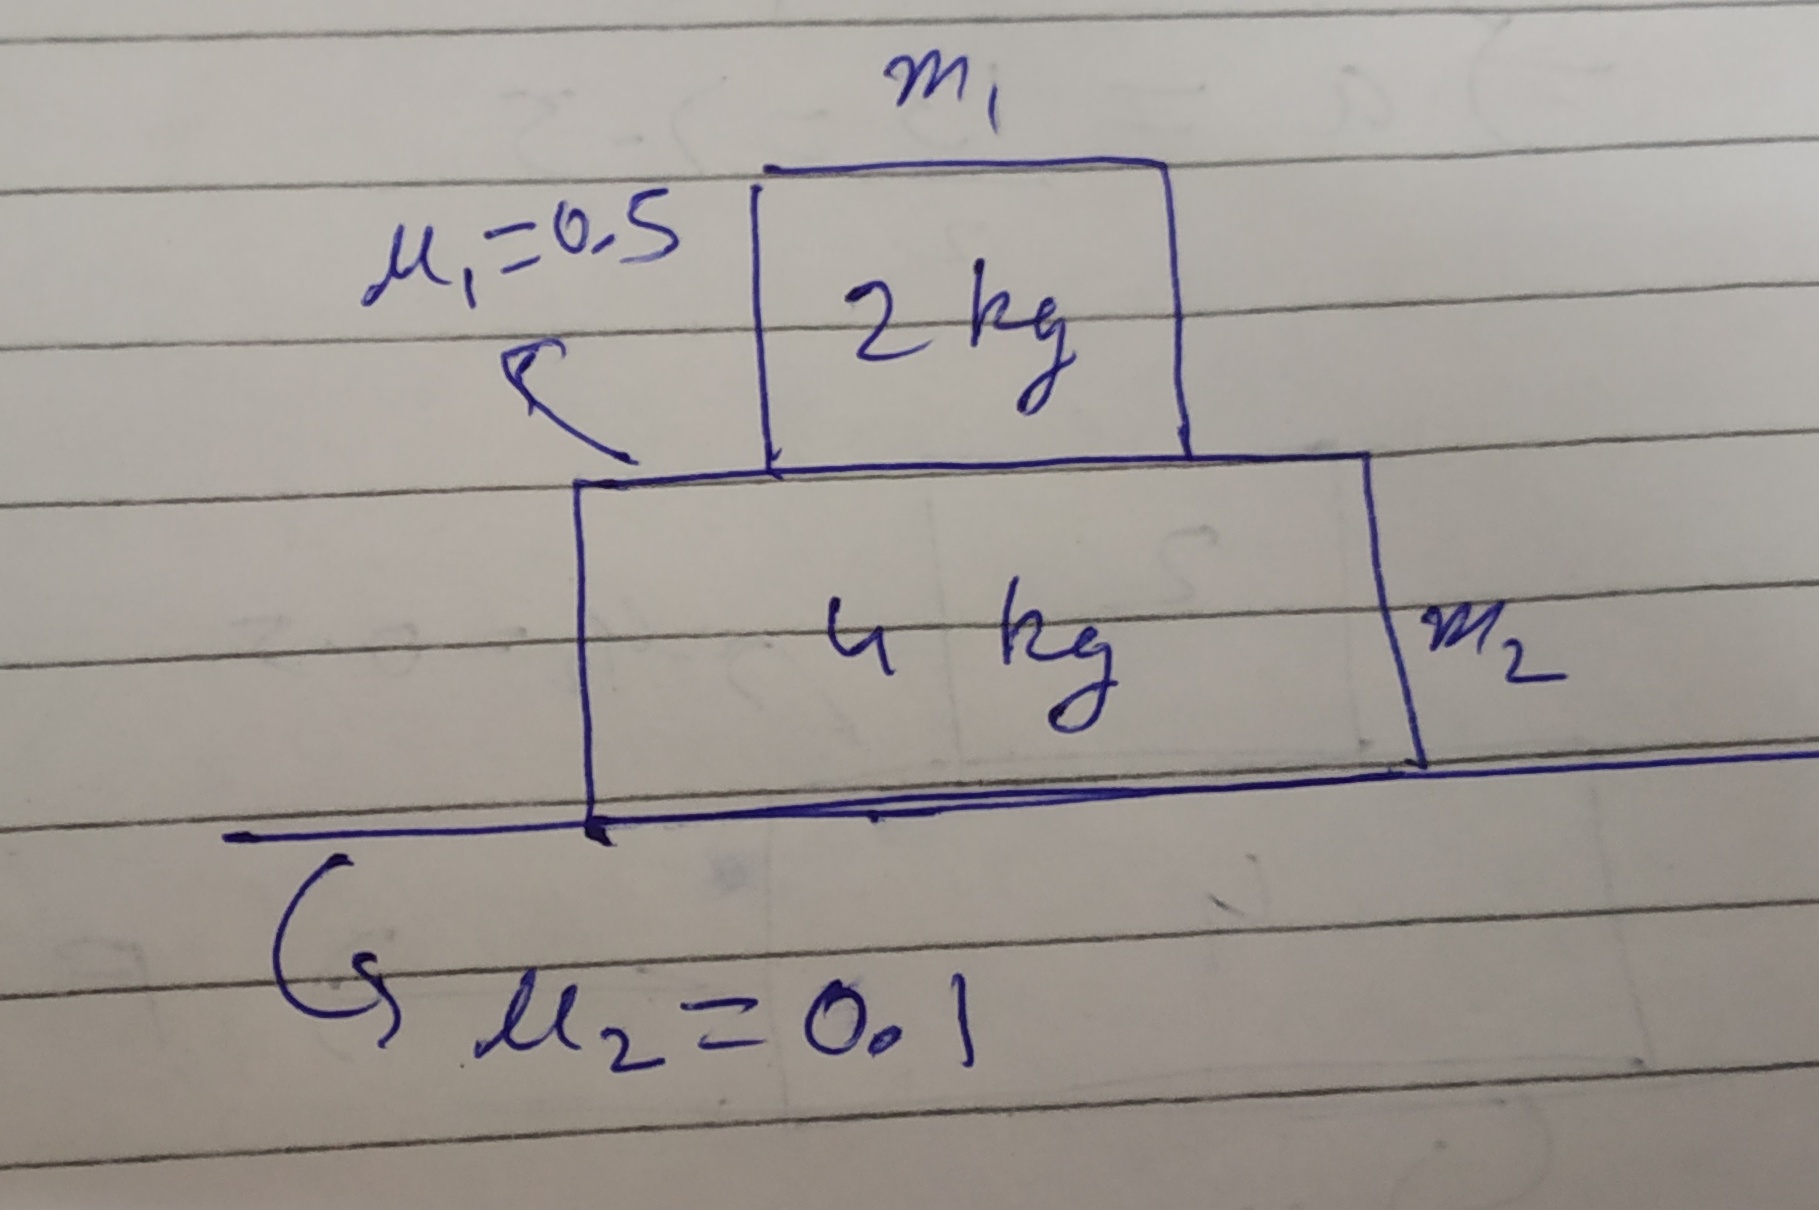 m₁
μ₁=0.5
2 kg
4 kg
m₂
μ₂=0.1